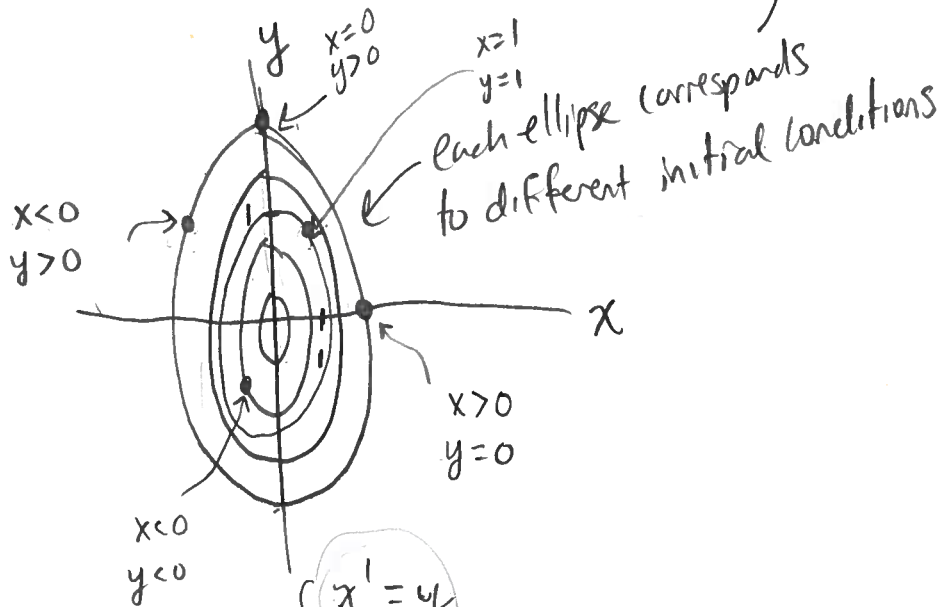 y
x=0
y>0
x=1
y=1
each ellipse corresponds
to different initial conditions
x<0
y>0
1
1
1
x
x>0
y=0
x<0
y<0
x' = y